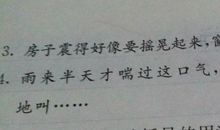 3. 房子震得好像要摇晃起来，
4. 雨来半天才喘过这口气，
地叫……